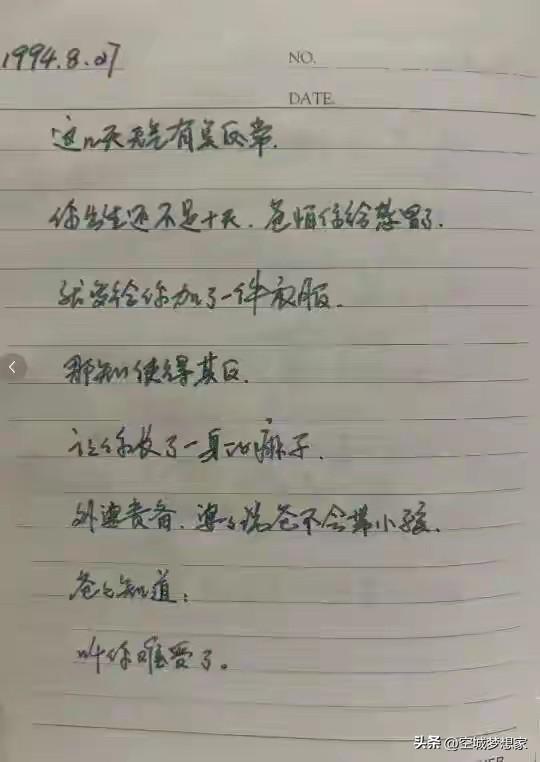 1994.8.27
NO.
DATE.
这几天天气有点反常.
你出生还不足十天.爸怕你给感冒了.
就多给你加了一件衣服.
那知使得其反.
让你长了一身的痱子.
外婆责备.婆婆说爸不会带小孩.
爸爸知道:
叫你难受了。
头条 @空城梦想家